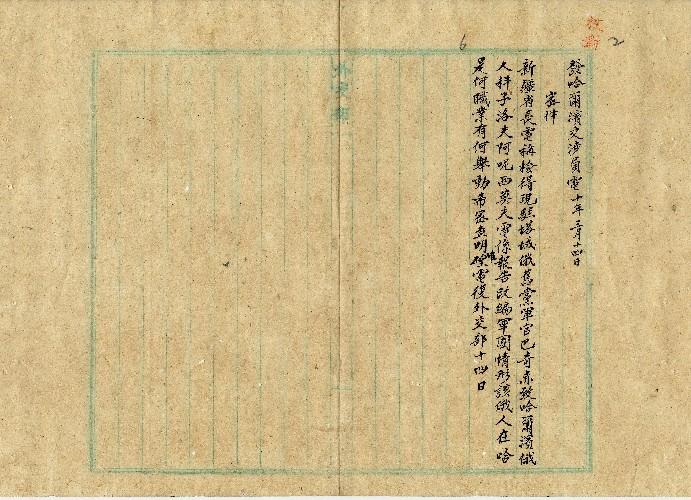 發哈爾濱交涉員電十年三月十四日
密件
新疆省長電稱檢得現駐塔城俄舊黨軍官巴奇赤致哈爾濱俄
人科子洛夫阿呢西莫夫電係報告改編軍團情形該俄人在哈
是何職業有何舉動希密查明確電復外交部十四日
外交部
校
2
6